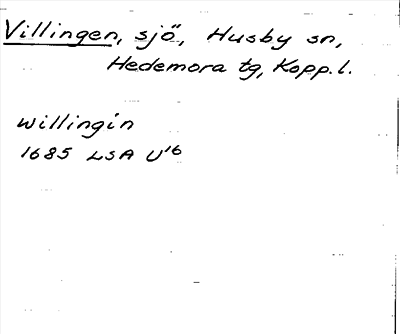 Villingen, sjö, Husby sn,
Hedemora tg, Kopp. l.
willingin
1685 LSA U16